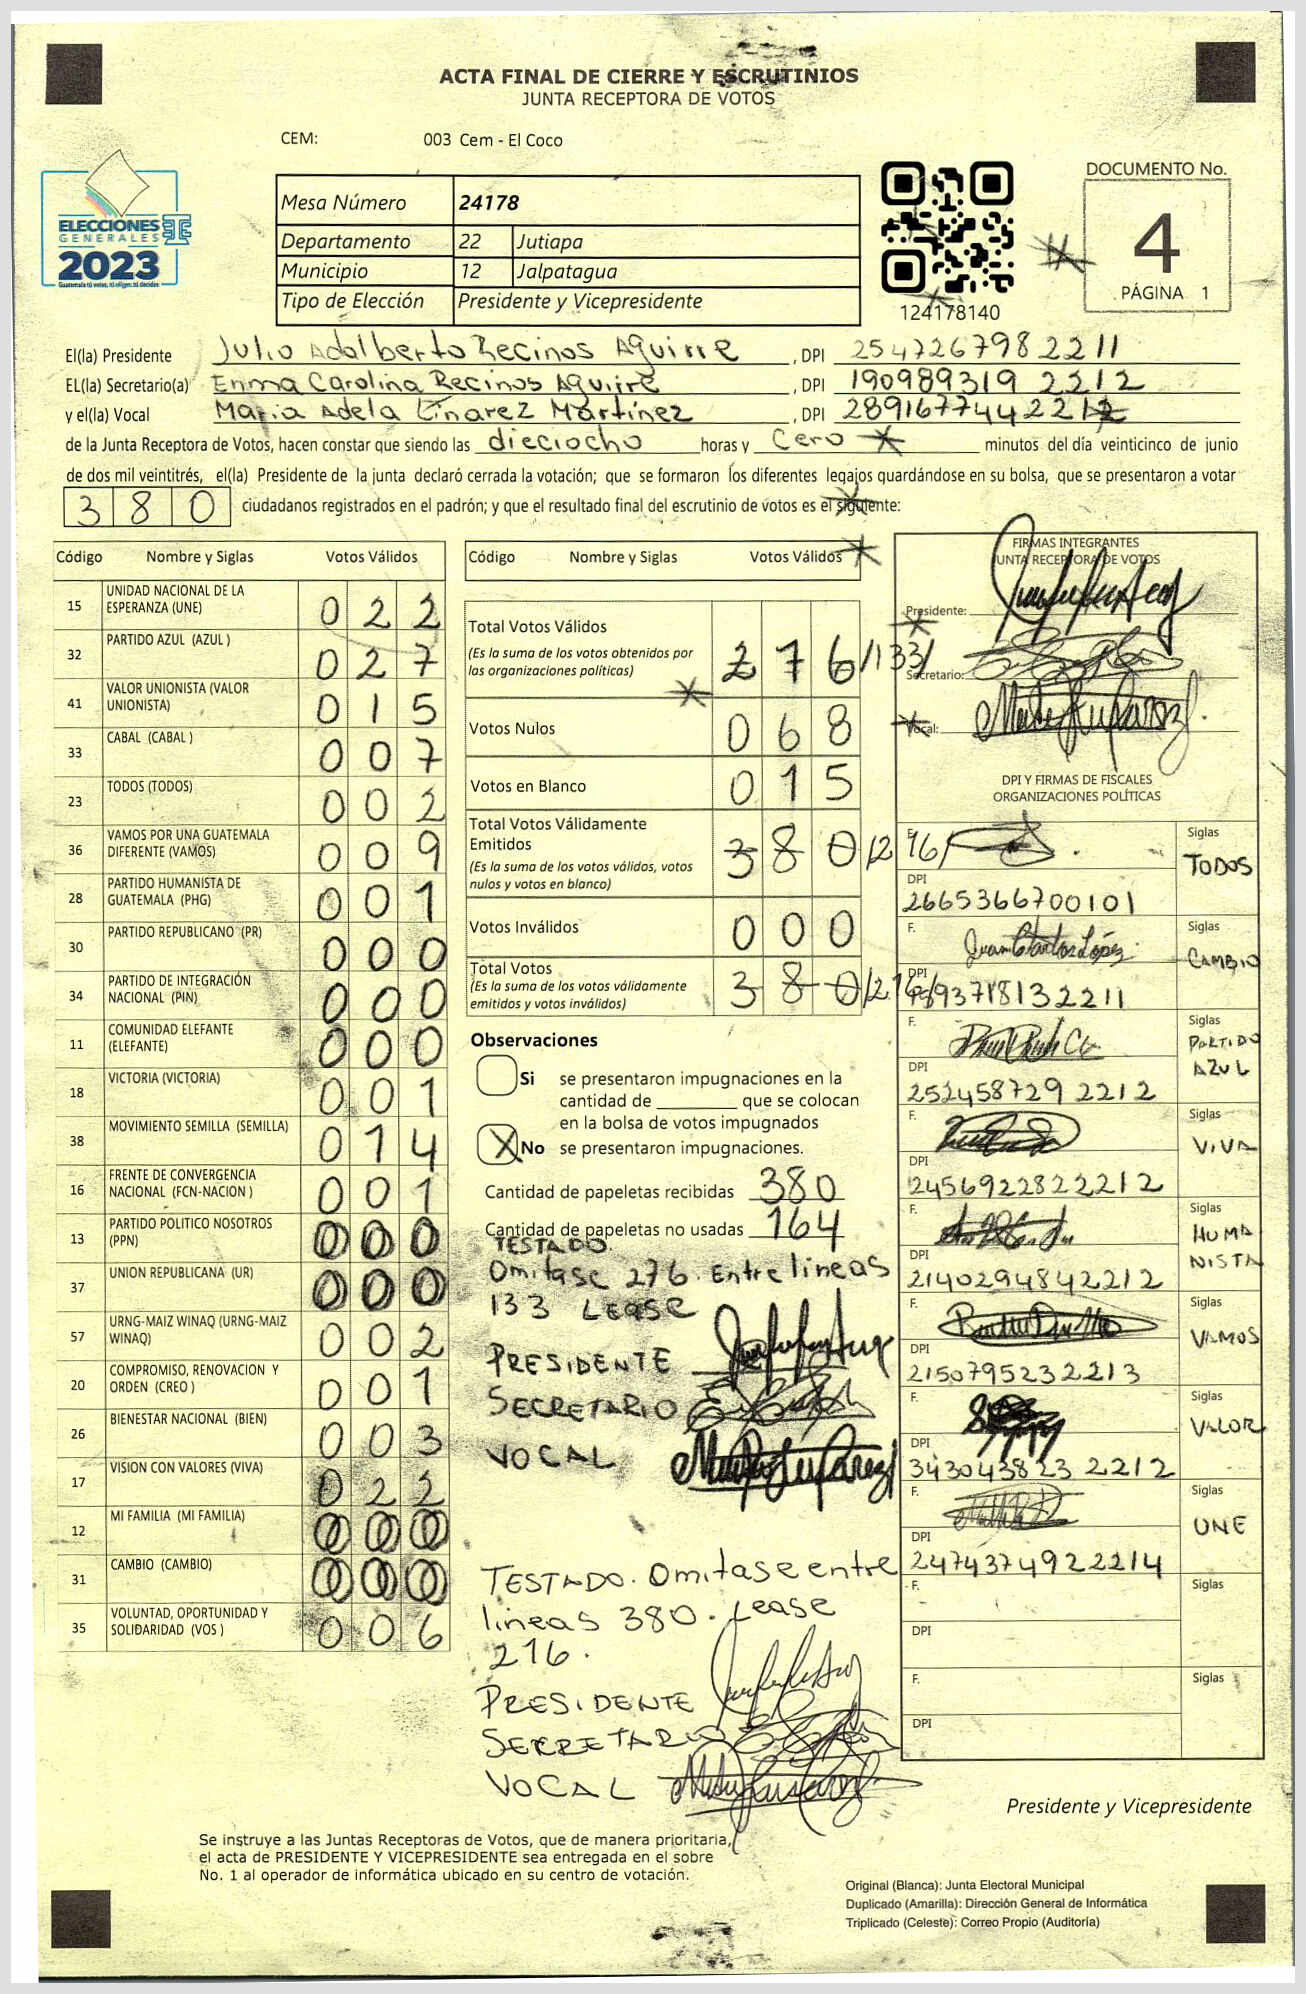 ACTA FINAL DE CIERRE Y ESCRUTINIOS
JUNTA RECEPTORA DE VOTOS
CEM: 003 Cem - El Coco
ELECCIONES
GENERALES
2023
Guatemala tú votas, tú eliges, tú decides
Mesa Número 24178
Departamento 22 Jutiapa
Municipio 12 Jalpatagua
Tipo de Elección Presidente y Vicepresidente
124178140
DOCUMENTO No.
4
PÁGINA 1
El(la) Presidente Julio Adalberto Recinos Aguirre , DPI 2547267982211
EL(la) Secretario(a) Enma Carolina Recinos Aguirre , DPI 190989319 2212
y el(la) Vocal Maria Adela Linarez Martínez , DPI 2891677442212
de la Junta Receptora de Votos, hacen constar que siendo las dieciocho horas y Cero minutos del día veinticinco de junio
de dos mil veintitrés, el(la) Presidente de la junta declaró cerrada la votación; que se formaron los diferentes legajos quardándose en su bolsa, que se presentaron a votar
380 ciudadanos registrados en el padrón; y que el resultado final del escrutinio de votos es el siguiente:
Código Nombre y Siglas Votos Válidos
15 UNIDAD NACIONAL DE LA ESPERANZA (UNE) 022
32 PARTIDO AZUL (AZUL ) 027
41 VALOR UNIONISTA (VALOR UNIONISTA) 015
33 CABAL (CABAL ) 007
23 TODOS (TODOS) 002
36 VAMOS POR UNA GUATEMALA DIFERENTE (VAMOS) 009
28 PARTIDO HUMANISTA DE GUATEMALA (PHG) 001
30 PARTIDO REPUBLICANO (PR) 000
34 PARTIDO DE INTEGRACIÓN NACIONAL (PIN) 000
11 COMUNIDAD ELEFANTE (ELEFANTE) 000
18 VICTORIA (VICTORIA) 001
38 MOVIMIENTO SEMILLA (SEMILLA) 014
16 FRENTE DE CONVERGENCIA NACIONAL (FCN-NACION ) 001
13 PARTIDO POLITICO NOSOTROS (PPN) 000
37 UNION REPUBLICANA (UR) 000
57 URNG-MAIZ WINAQ (URNG-MAIZ WINAQ) 002
20 COMPROMISO, RENOVACION Y ORDEN (CREO ) 001
26 BIENESTAR NACIONAL (BIEN) 003
17 VISION CON VALORES (VIVA) 022
12 MI FAMILIA (MI FAMILIA) 000
31 CAMBIO (CAMBIO) 000
35 VOLUNTAD, OPORTUNIDAD Y SOLIDARIDAD (VOS ) 006
Código Nombre y Siglas Votos Válidos
Total Votos Válidos 276 /133/
(Es la suma de los votos obtenidos por las organizaciones políticas)
Votos Nulos 068
Votos en Blanco 015
Total Votos Válidamente Emitidos 380 /216/
(Es la suma de los votos válidos, votos nulos y votos en blanco)
Votos Inválidos 000
Total Votos 380 /216/
(Es la suma de los votos válidamente emitidos y votos inválidos)
Observaciones
Si se presentaron impugnaciones en la
cantidad de ________ que se colocan
en la bolsa de votos impugnados
X No se presentaron impugnaciones.
Cantidad de papeletas recibidas 380
Cantidad de papeletas no usadas 164
TESTADO.
Omitase 276. Entre lineas
133 LEASE
PRESIDENTE
SECRETARIO
VOCAL
TESTADO. Omitase entre
lineas 380. Lease
216.
PRESIDENTE
SECRETARIO
VOCAL
FIRMAS INTEGRANTES
JUNTA RECEPTORA DE VOTOS
Presidente:
Secretario:
Vocal:
DPI Y FIRMAS DE FISCALES
ORGANIZACIONES POLÍTICAS
F. Siglas TODOS
DPI 2665366700101
F. Juan Carlos López Siglas CAMBIO
DPI 93718132211
F. Siglas PARTIDO AZUL
DPI 252458729 2212
F. Siglas VIVA
DPI 2456922822212
F. Siglas HUMANISTA
DPI 2140294842212
F. Siglas VAMOS
DPI 2150795232213
F. Siglas VALOR
DPI 343043823 2212
F. Siglas UNE
DPI 2474374922214
F. Siglas
DPI
F. Siglas
DPI
Presidente y Vicepresidente
Se instruye a las Juntas Receptoras de Votos, que de manera prioritaria,
el acta de PRESIDENTE Y VICEPRESIDENTE sea entregada en el sobre
No. 1 al operador de informática ubicado en su centro de votación.
Original (Blanca): Junta Electoral Municipal
Duplicado (Amarilla): Dirección General de Informática
Triplicado (Celeste): Correo Propio (Auditoría)